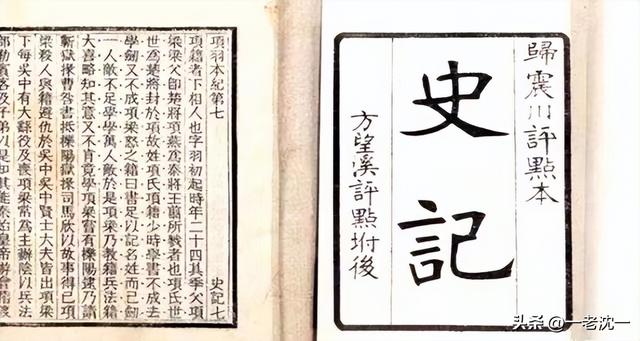 歸震川評點本
史記
方望溪評點坿後
史記七
項羽本紀第七
項籍者下相人也字羽初起時年二十四其季父項
梁梁父卽楚將項燕爲秦將王翦所戮者也項氏世
世爲楚將封於項故姓項氏項籍少時學書不成去
學劒又不成項梁怒之籍曰書足以記名姓而已劒
一人敵不足學學萬人敵於是項梁乃教籍兵法籍
大喜略知其意又不肯竟學項梁嘗有櫟陽逮乃請
蘄獄掾曹咎書抵櫟陽獄掾司馬欣以故事得已項
梁殺人與籍避仇於吳中吳中賢士大夫皆出項梁
下每吳中有大繇役及喪項梁常爲主辦陰以兵法
部勒賓客及子弟以是知其能秦始皇帝游會稽
头条 @一老沈一